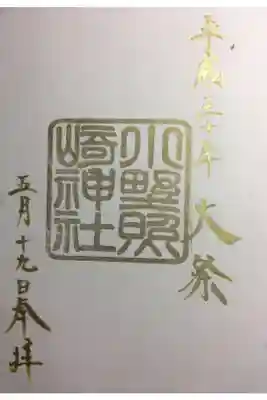 平成三十年大祭
小野照
崎神社
五月十九日奉拝